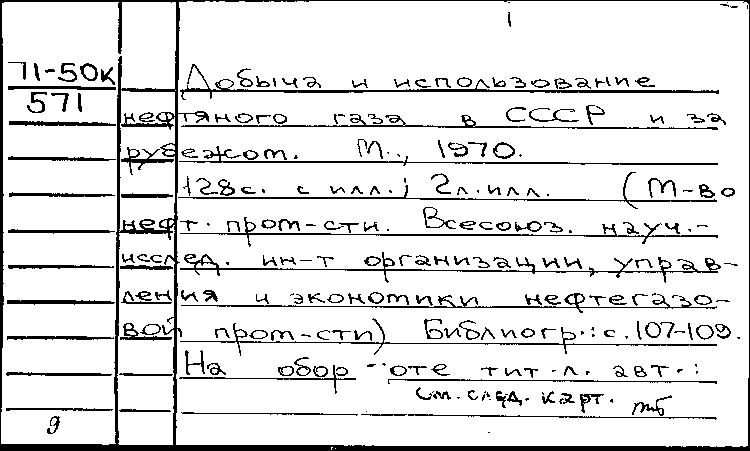 1
71-50к
571
Добыча и использование
нефтяного газа в СССР и за
рубежом. М., 1970.
128с. с илл.; 2л.илл. (М-во
нефт. пром-сти. Всесоюз. науч.-
исслед. ин-т организации, управ-
ления и экономики нефтегазо-
вой пром-сти) Библиогр.: с.107-109.
На обороте тит.л. авт.:
см. след. карт.
9